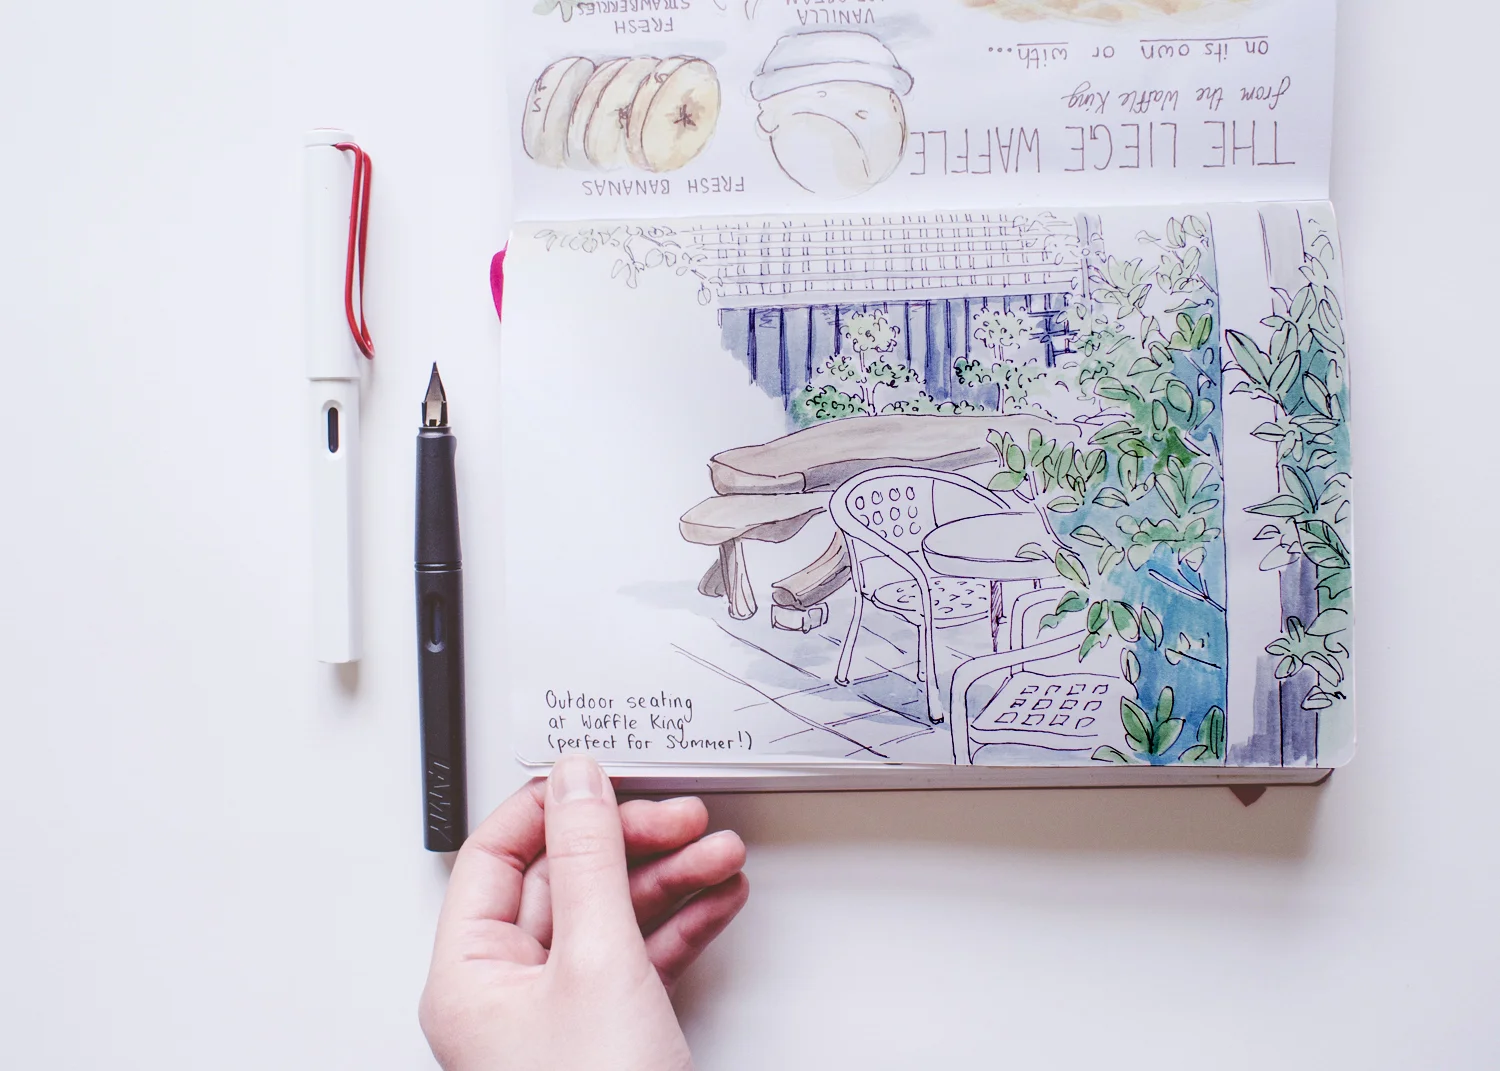 THE LIEGE WAFFLE
from the Waffle King
on its own or with...
FRESH BANANAS
VANILLA
FRESH
STRAWBERRIES
Outdoor seating
at Waffle King
(perfect for Summer!)
LAMY